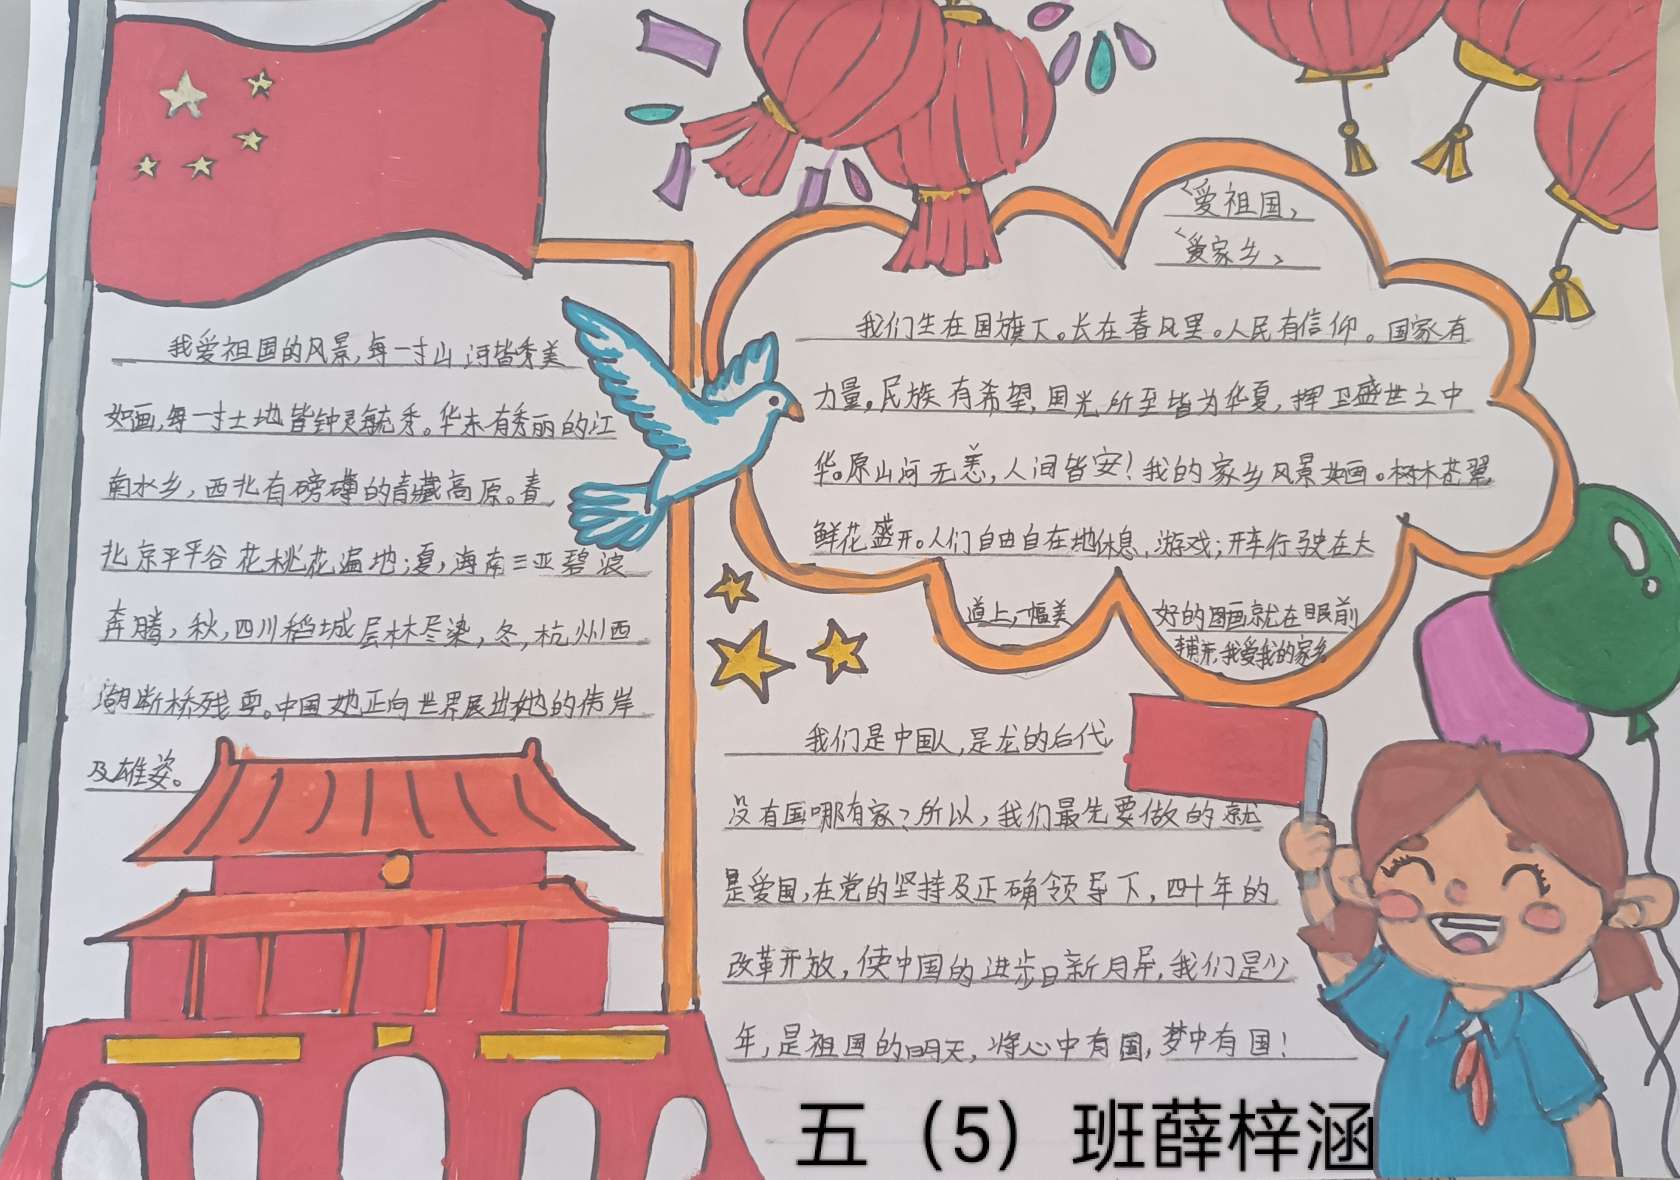 我爱祖国的风景,每一寸山河皆秀美
如画,每一寸土地皆钟灵毓秀。华东有秀丽的江
南水乡,西北有磅礴的青藏高原。春,
北京平平谷花桃花遍地;夏,海南三亚碧浪
奔腾,秋,四川稻城层林尽染,冬,杭州西
湖断桥残雪。中国她正向世界展出她的伟岸
及雄姿。
《爱祖国》
《爱家乡》
我们生在国旗下。长在春风里。人民有信仰。国家有
力量。民族有希望,国光所至皆为华夏,捍卫盛世之中
华。原山河无恙,人间皆安!我的家乡风景如画。树木苍翠
鲜花盛开。人们自由自在地休息,游戏;开车行驶在大
道上,一幅美 好的图画就在眼前
我爱我的家乡
我们是中国人,是龙的后代,
没有国哪有家?所以,我们最先要做的就
是爱国,在党的坚持及正确领导下,四十年的
改革开放,使中国的进步日新月异,我们是少
年,是祖国的明天,将心中有国,梦中有国!
五（5）班薛梓涵